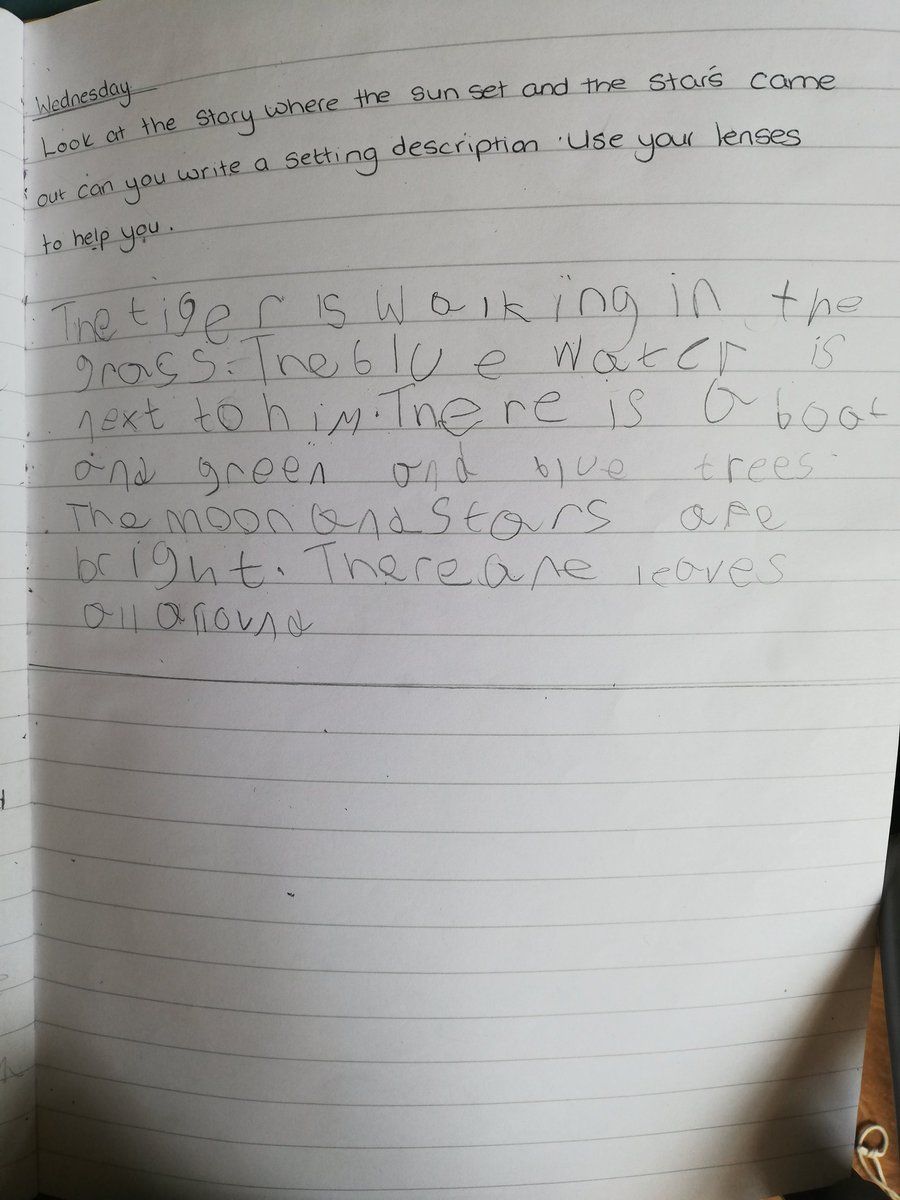 Wednesday
Look at the story where the sun set and the stars came
out can you write a setting description. Use your lenses
to help you.
The tiger is walking in the
grass. The blue water is
next to him. There is a boat
and green and blue trees.
The moon and stars are
bright. There are leaves
all around